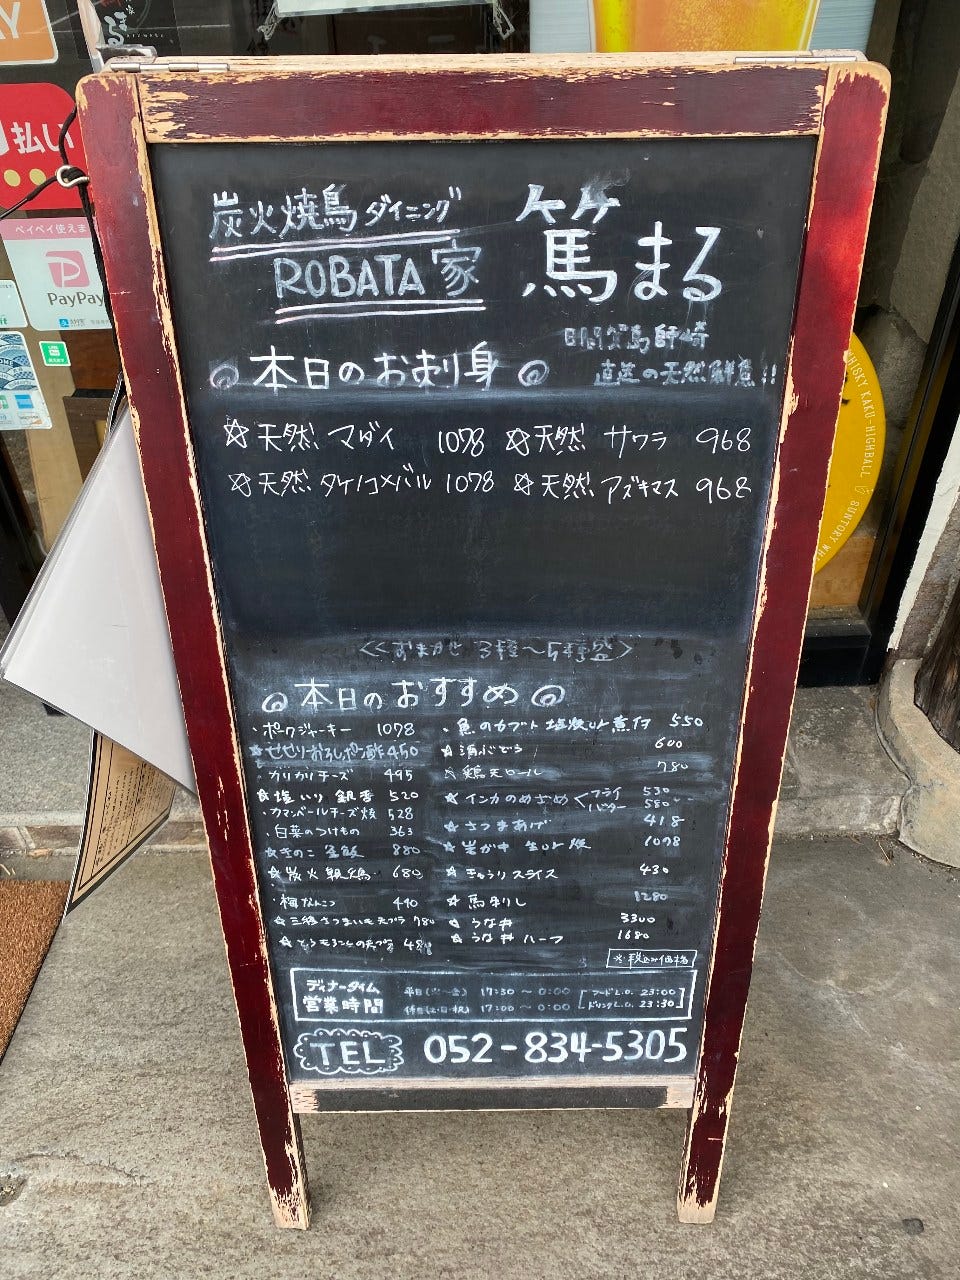 払い
ペイペイ使えま
PayPay
WHISKY KAKU-HIGHBALL
SUNTORY WH
炭火焼鳥ダイニング
ROBATA家
篤まる
師崎
直送の天然鮮魚!!
本日のお刺身
☆天然 マダイ 1078 ☆天然 サワラ 968
☆天然 タケノコメバル 1078 ☆天然 アズキマス 968
<<おまかせ 3種〜5種盛>
本日のおすすめ
・ポークジャーキー 1078
★せせりおろしポン酢 450
・カリカリチーズ 495
☆塩いり銀杏 520
・カマンベールチーズ焼 528
・白菜のつけもの 363
☆きのこ釜飯 880
☆炭火親鶏 680
・梅なんこつ 440
☆三種さつまいも天プラ 780
☆とうもろこしの天プラ
・魚のカブト 塩焼or煮付 550
★海ぶどう 600
☆鶏天ロール 780
☆インカのめざめ<フライ 530
バター 580
☆さつまあげ 418
☆岩がき 生or焼 1078
☆きゅうりスライス 430
☆馬刺し 1280
☆うな丼 3300
☆うな丼 ハーフ 1680
※税込み価格
ディナータイム
営業時間
平日(火〜金) 17:30 〜 0:00
休日(土・日・祝) 17:00 〜 0:00
フードL.O. 23:00
ドリンクL.O. 23:30
TEL 052-834-5305